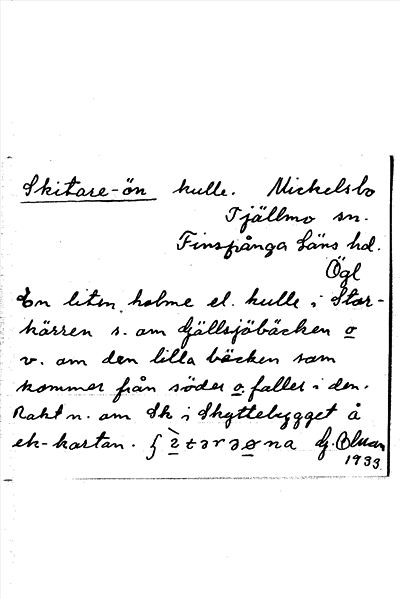 Skitare-ön kulle. Mickelsbo
Tjällmo sn.
Finspånga läns hd.
Ögl
En liten holme el. kulle i Stor-
kärren s. om Gjällsjöbäcken o
v. om den lilla bäcken som
kommer från söder o. faller i den.
Rakt n. om Sk i Skyttebygget å
ek-kartan.
1933